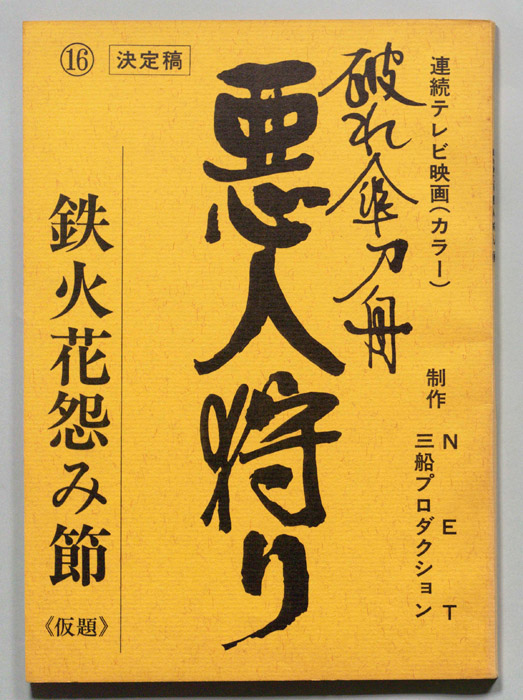 連続テレビ映画(カラー)
制作 NET
三船プロダクション
破れ傘刀舟
悪人狩り
⑯ 決定稿
鉄火花怨み節
《仮題》